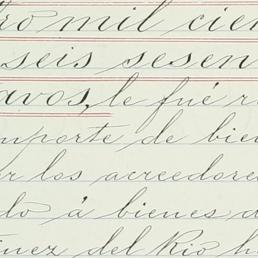 tro mil cien
seis sesen
avos, le fué r
mporte de bie
r los acreedore
do á bienes d
inez del Rio h